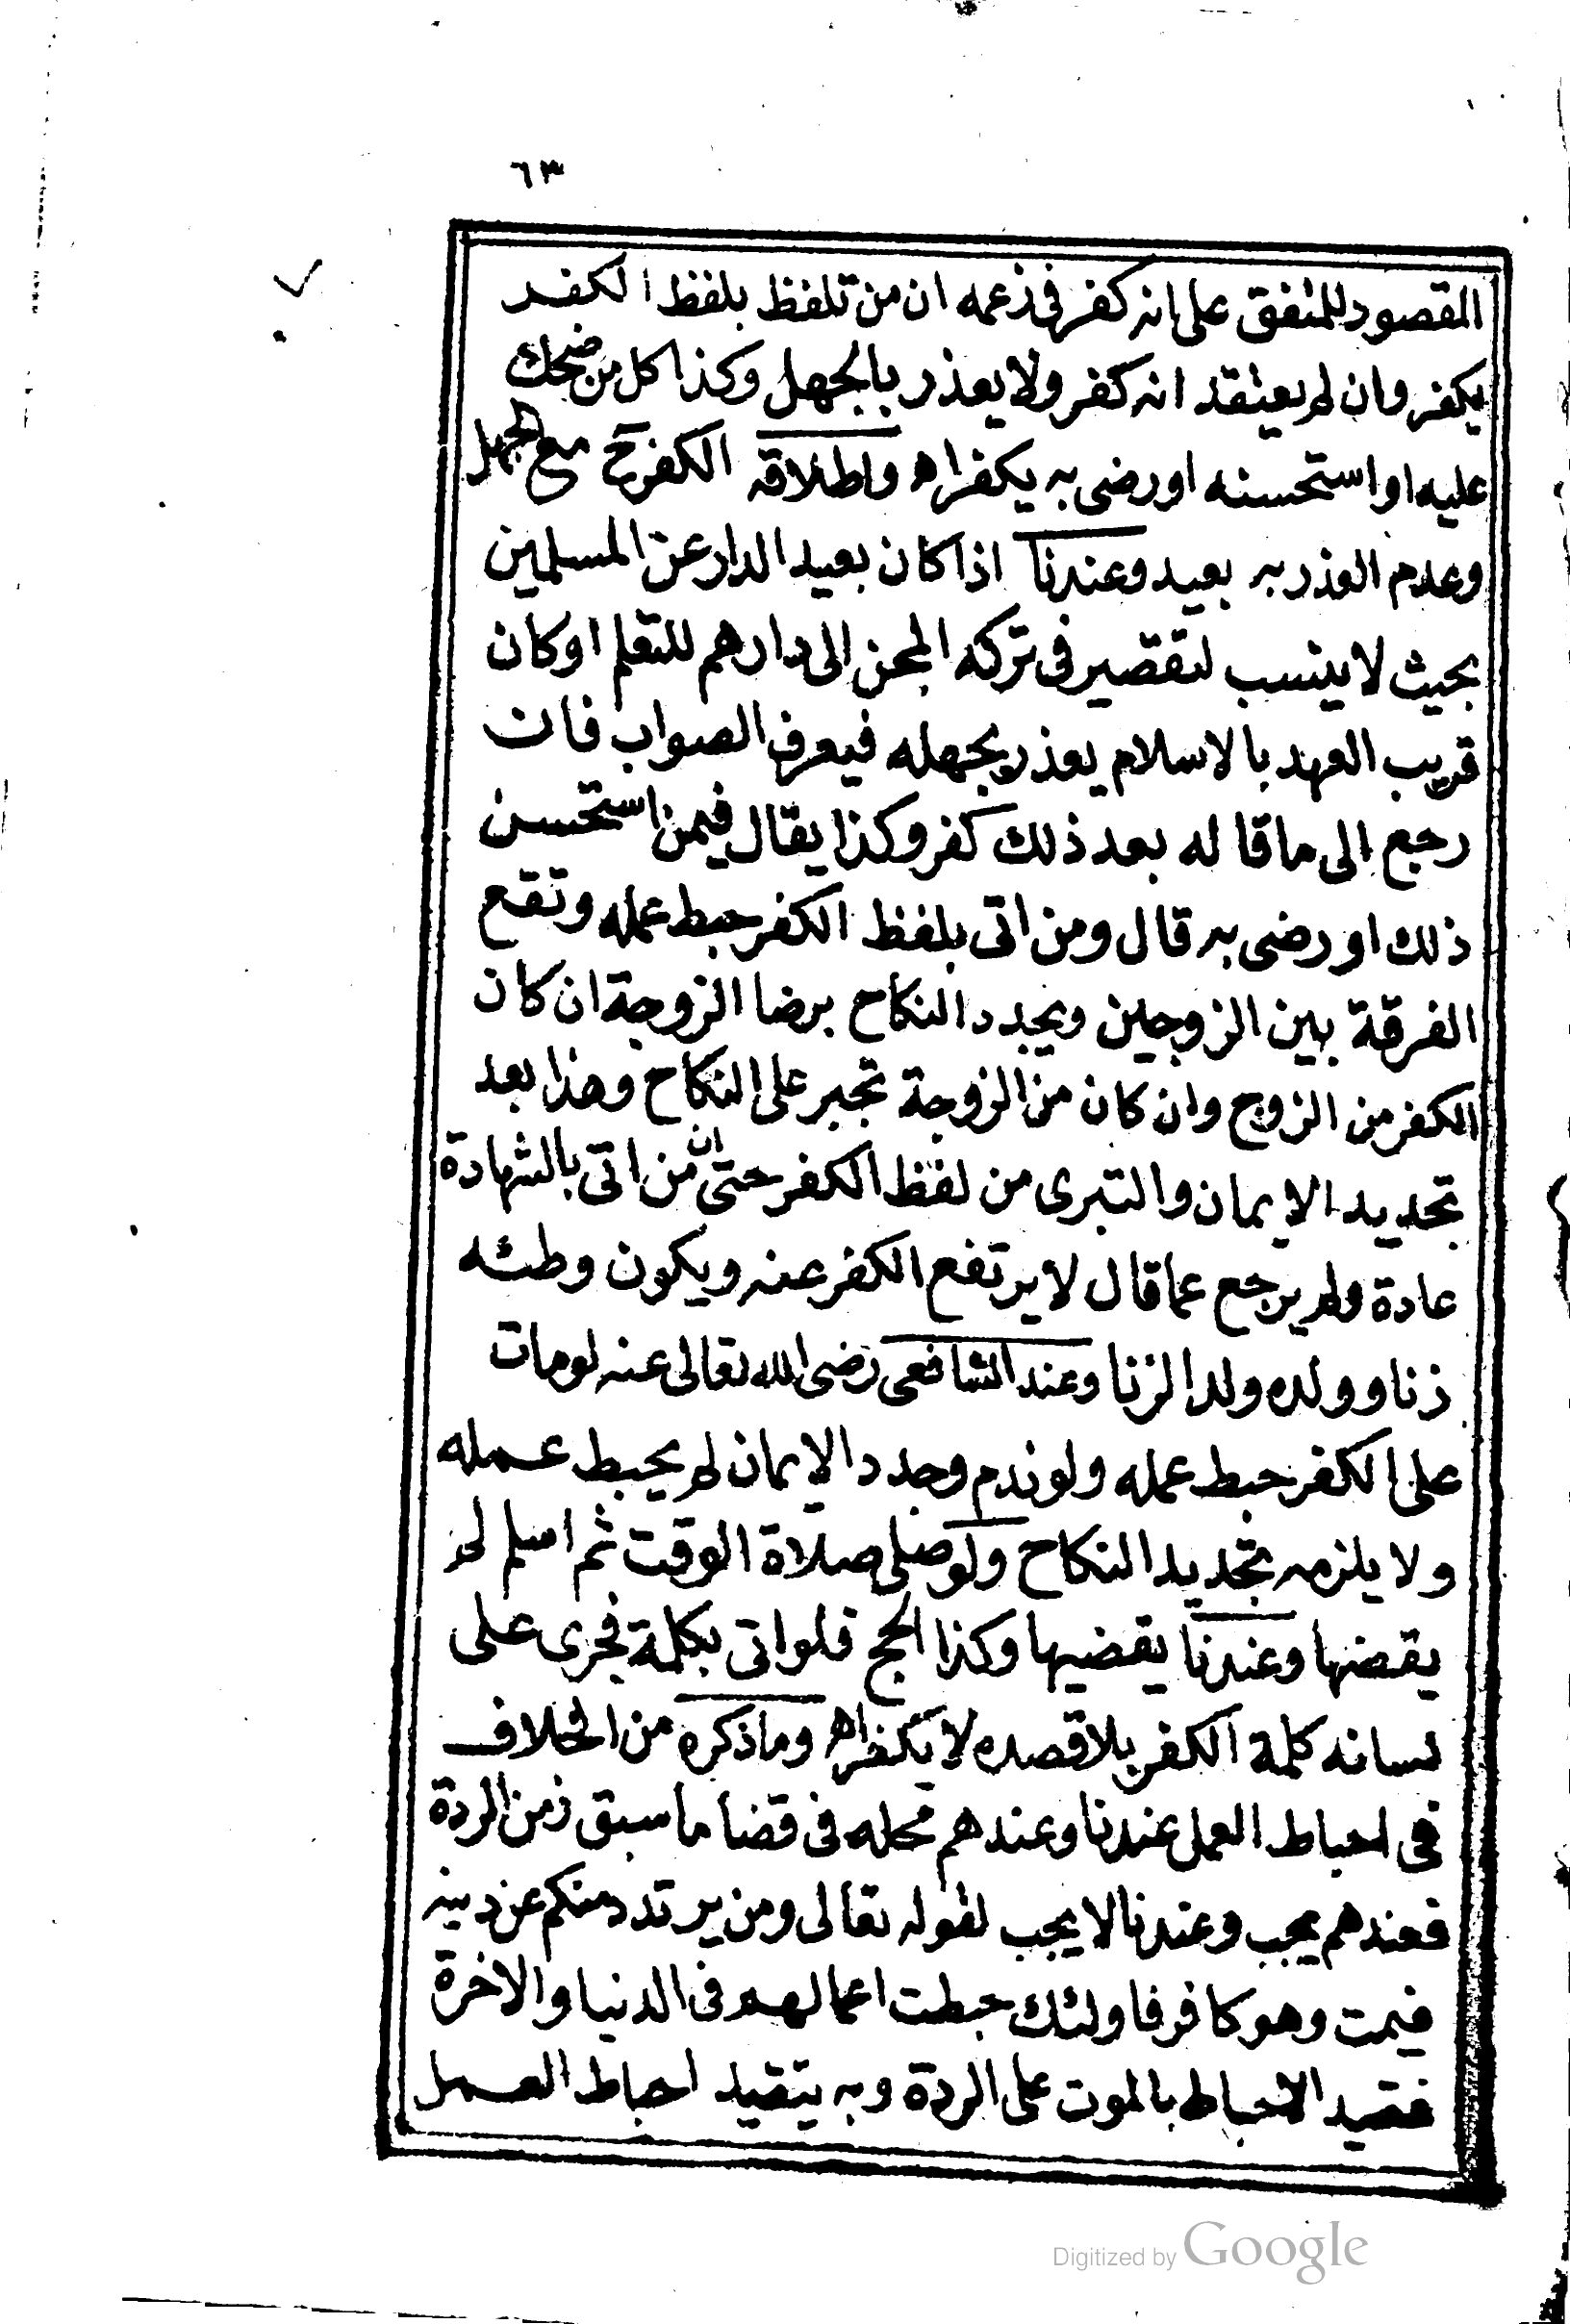 ٦٣
المقصود للمتفق على انه كفر فى زعمه ان من تلفظ بلفظ الكفر
يكفر وان لم يعتقد انه كفر ولا يعذر بالجهل وكذا كل من ضحك
عليه او استحسنه او رضى به يكفر اه واطلاقه الكفر ح مع الجهل
وعدم العذر به بعيد وعندنا اذا كان بعيد الدار عن المسلمين
بحيث لا ينسب لتقصير فى تركه المجئ الى دارهم للتعلم او كان
قريب العهد بالاسلام يعذر بجهله فيعرف الصواب فان
رجع الى ما قاله بعد ذلك كفر وكذا يقال فيمن استحسن
ذلك او رضى به قال ومن اتى بلفظ الكفر حبط عمله وتقع
الفرقة بين الزوجين ويجدد النكاح برضا الزوجة ان كان
الكفر من الزوج وان كان من الزوجة تجبر على النكاح وهذا بعد
تجديد الايمان والتبرى من لفظ الكفر حتى ان من اتى بالشهادة
عادة ولم يرجع عما قال لا يرتفع الكفر عنه ويكون وطئه
زنا وولده ولد الزنا وعند الشافعى رضى الله تعالى عنه لو مات
على الكفر حبط عمله ولو ندم وجدد الايمان لم يحبط عمله
ولا يلزمه تجديد النكاح ولو صلى صلاة الوقت ثم اسلم لم
يقضها وعندنا يقضيها وكذا الحج فلو اتى بكلمة فجرى على
لسانه كلمة الكفر بلا قصده لا يكفر اه وما ذكره من الخلاف
فى احباط العمل عندنا وعندهم محله فى قضا ما سبق زمن الردة
فعندهم يجب وعندنا لا يجب لقوله تعالى ومن يرتدد منكم عن دينه
فيمت وهو كافر فاولئك حبطت اعمالهم فى الدنيا والاخرة
فقيد الاحباط بالموت على الردة وبه يتقيد احباط العمل
Digitized by Google